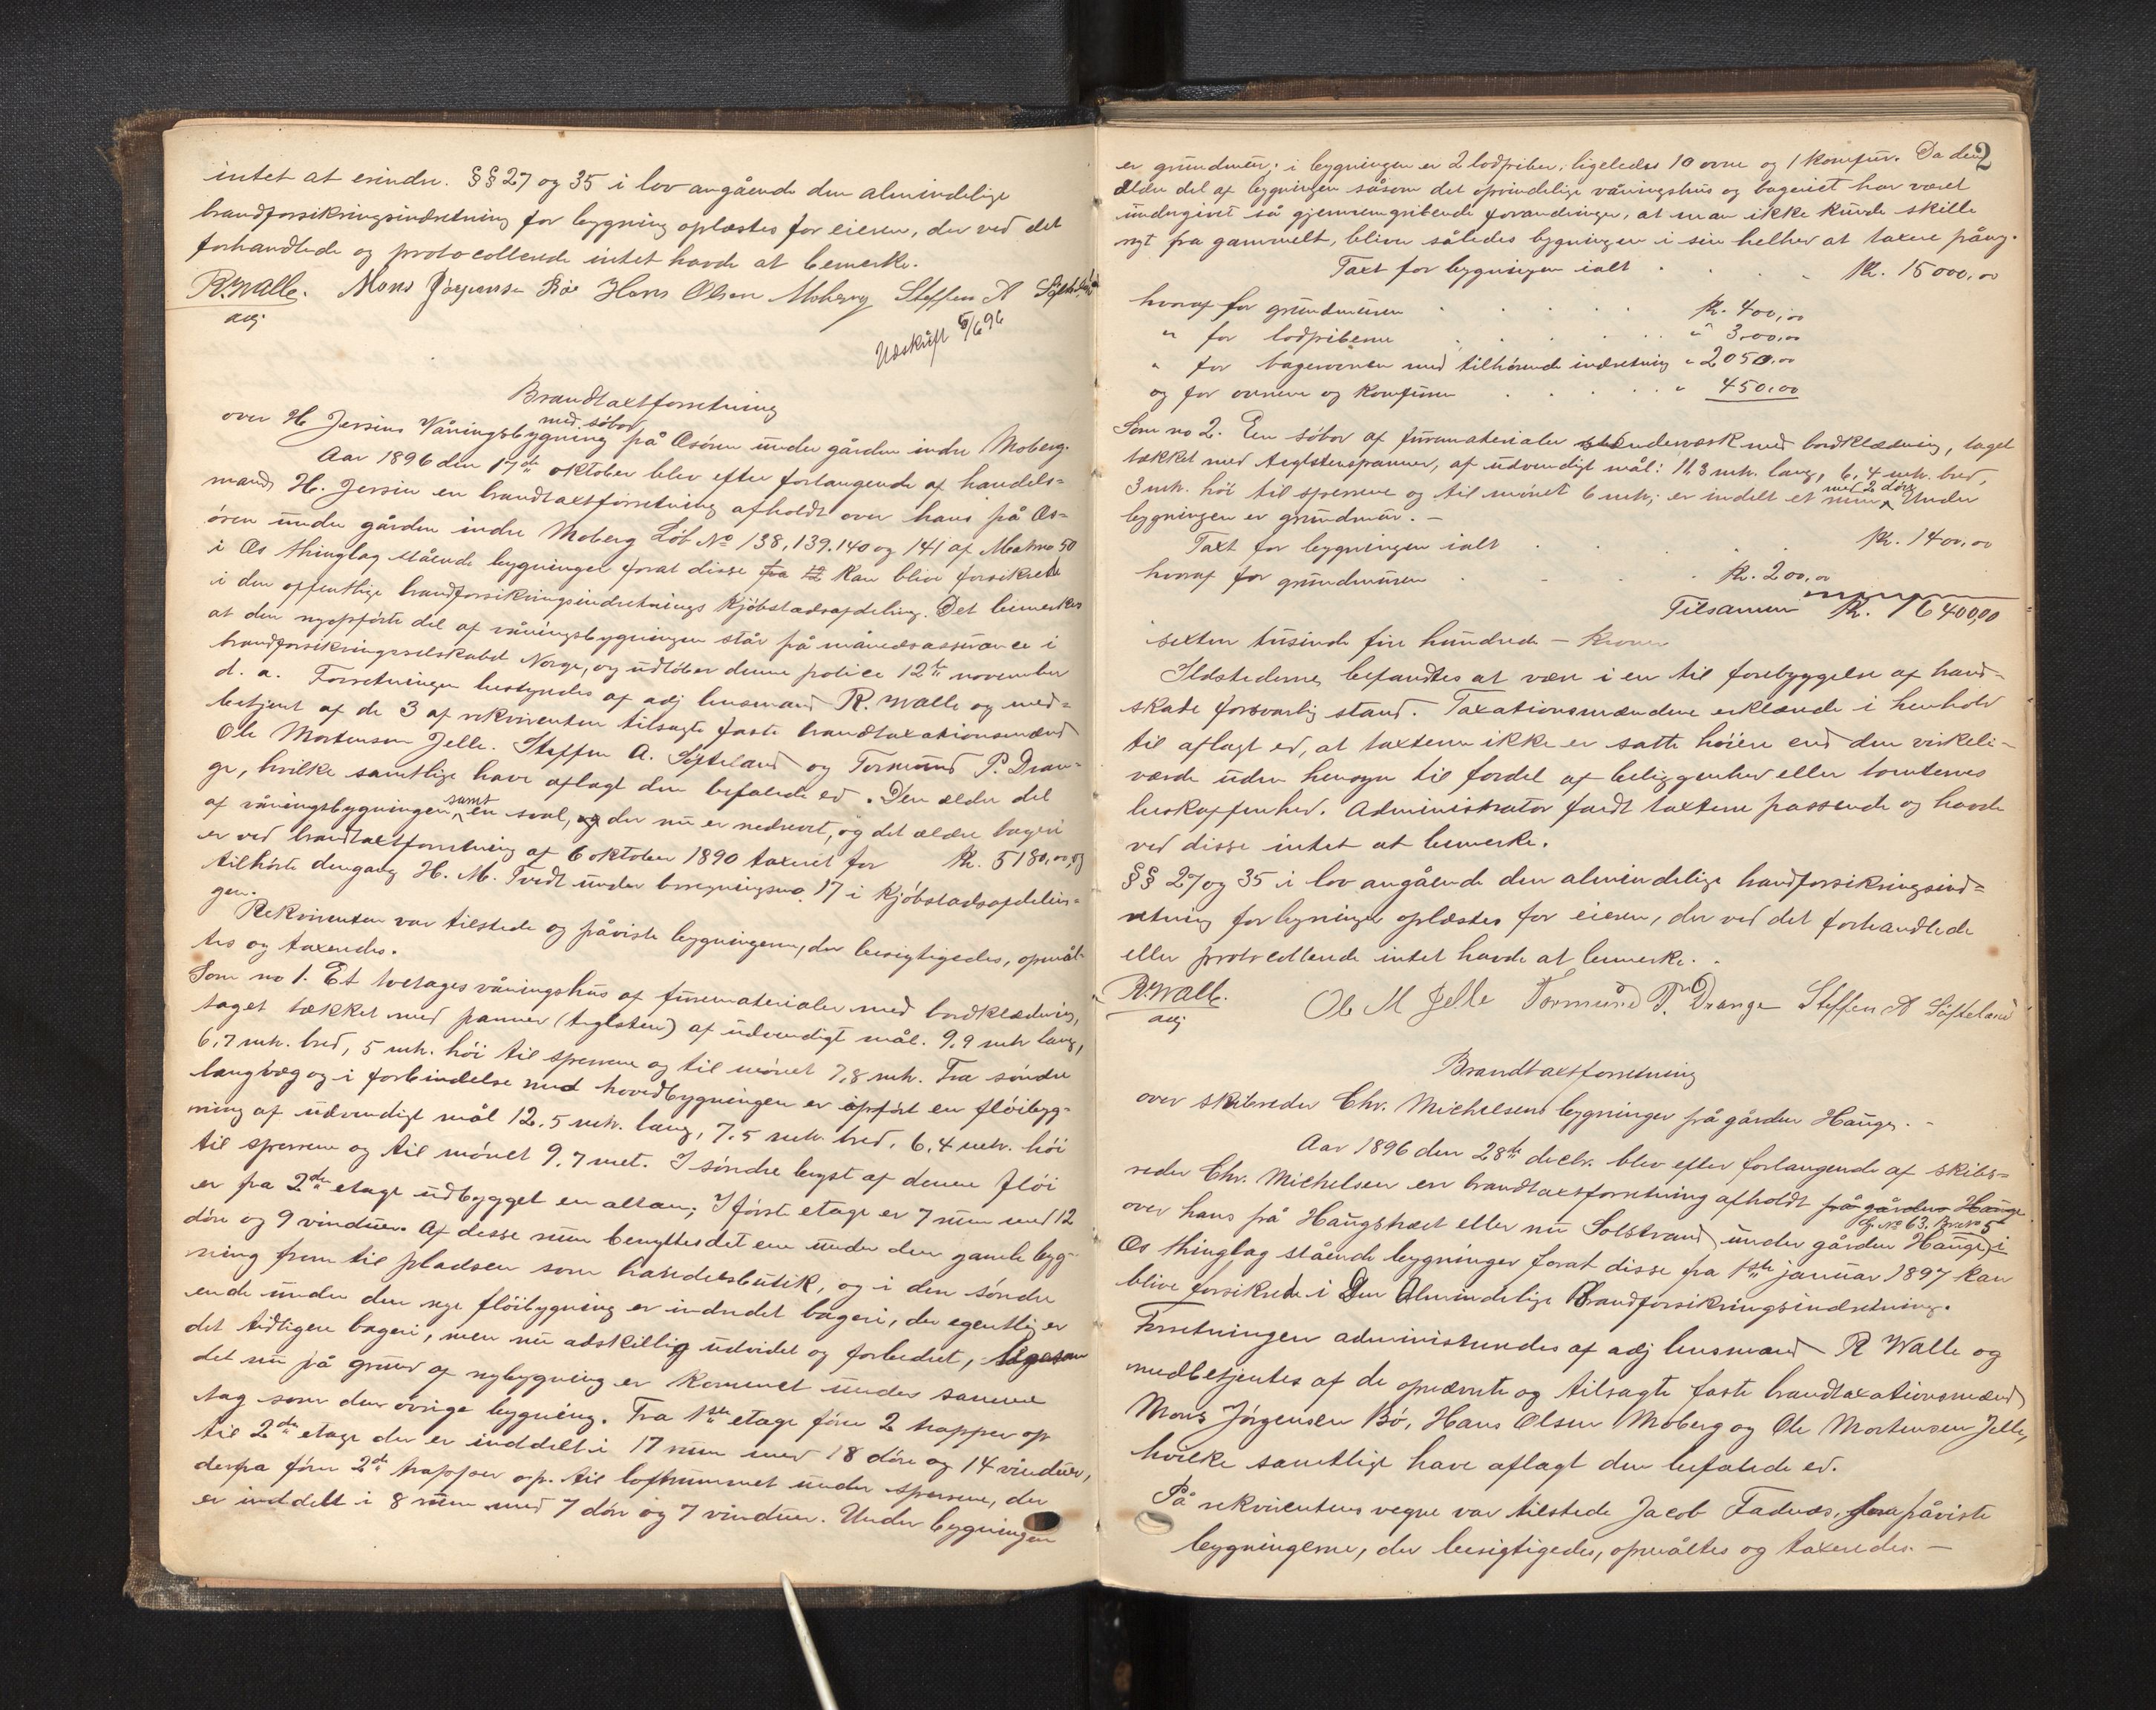 intet at erindre. §§ 27 og 35 i lov angående den almindelige
brandforsikringsindretning for bygning oplæstes for eieren, der ved det
forhandlede og protocollerede intet havde at bemerke.
R. Walle. Mons Jørgensen Bøe Hans Olsen Moberg Steffen A Søfteland
adj
Udskrift 5/6 96
Brandtaxtforretning
over H Jersins Våningsbygning med søbod på Osøren under gården indre Moberg.
Aar 1896 den 17de oktober blev efter forlangende af handels=
mand H. Jersin en brandtaxtforretning afholdt over hans på Os=
øren under gården indre Moberg Løb No 138, 139. 140 og 141 af Matr no 50
i Os thinglag stående bygninger forat disse fra kan blive forsikrede
i den offentlige brandforsikringsindretnings kjøbstadsafdeling. Det bemerkes
at den nyopførte del af våningsbygningen står på månedsassurance i
brandforsikringsselskabet Norge, og udløber denne police 12te november
d. a. Forretningen bestyredes af adj lensmand R. Walle og med=
betjent af de 3 af rekvirenten tilsagte faste brandtaxationsmænd
Ole Mortensen Jelle. Steffen A. Søfteland og Tormund P. Dran=
ge, hvilke samtlige have aflagt den befalede ed. Den ældre del
af våningsbygningen, samt en sval, og der nu er nedrevet, og det ældre bageri
er ved brandtaxtforretning af 6 oktober 1890 taxeret for Kr. 5180,00 og
tilhørte dengang H. M. Tvedt under bevegningsno. 17 i kjøbstadsafdelin=
gen.
Rekvirenten var tilstede og påviste bygningerne, der besigtigedes, opmål=
tes og taxeredes.
Som no 1. Et toetages våningshus af furumaterialer med bordklædning,
taget tækket med panner (teglsten) af udvendigt mål. 9.9 mtr lang,
6,7 mtr. bred, 5 mtr. høi til sperrene og til mønet 7,8 mtr. Fra søndre
langvæg og i forbindelse med hovedbygningen er opført en fløibyg=
ning af udvendigt mål 12.5 mtr. lang, 7.5 mtr. bred, 6,4 mtr. høi
til sperrene og til mønet 9,7 met. I søndre bryst af denne fløi
er fra 2den etage udbygget en altan; I første etage er 7 rum med 12
døre og 9 vinduer. Af desse rum benyttes det ene under den gamle byg=
ning frem til pladsen som handelsbutik, og i den søndre
ende under den nye fløibygning er indredet bageri, der egentlig er
det tidligere bageri, men nu adskillig udvidet og forbedret,
det nu på grund af nybygning er kommet under samme
tag som den øvrige bygning. Fra 1ste etage fører 2 trapper op
til 2den etage der er inddelt i 17 rum med 18 døre og 14 vinduer,
derfra fører 2de trapper op til loftrummet under sperrene, der
er inddelt i 8 rum med 7 døre og 7 vinduer. Under bygningen
2
er grundmur; i bygningen er 2 lodpiber, ligeledes 10 ovne og 1 komfur. Da den
ældre del af bygningen såsom det oprindelige våningshus og bageriet har været
undergivet så gjennemgribende forandringer, at man ikke kunde skille
nyt fra gammelt, bliver således bygningen i sin helhed at taxere påny.
Taxt for bygningen ialt . . . . Kr. 15000,00
hvoraf for grundmuren . . . . Kr. 400,00
" for lodpiberne . . . . " 300,00
" for bagerovnen med tilhørende indretning " 2050,00
og for ovnene og komfuren . . . . " 450,00
Som no 2. En søbod af furumaterialer stenderværk med bordklædning, taget
tækket med teglstenspanner, af udvendigt mål: 11.3 mtr. lang, 6,4 mtr. bred,
3 mtr. høi til sperrene og til mønet 6 mtr; er indelt et rum med 2 døre Under
bygningen er grundmur. —
Taxt for bygningen ialt . . . . Kr. 1400,00
hvoraf for grundmuren . . . . Kr. 200,00
Tilsammen Kr. 16400,00
sexten tusinde fire hundrede — kroner
Ildstederne, befandtes at være i en til forebyggelse af brand=
skade forsvarlig stand. Taxationsmændene erklærede i henhold
til aflagt ed, at taxterne ikke er satte høiere end den virkeli=
værde uden hensyn til fordel af beliggenhed eller tomternes
beskaffenhed. Administrator fandt taxterne passende og havde
ved disse intet at bemerke.
§§ 27 og 35 i lov angående den almindelige brandforsikringsind=
retning for bygninger oplæstes for eieren, der ved det forhandlede
eller protocollerede intet havde at bemerke.
R. Walle. Ole M Jelle Tormund P. Drange Steffen A Søfteland
adj
Brandtaxtforretning
over skibsreder Chr. Michelsens bygninger på gården Hauge.
Aar 1896 den 28de decbr. blev efter forlangende af skibs=
reder Chr. Michelsen en brandtaxtforretning afholdt på gården Hauge
over hans på Haugstræet eller nu Solstrand under gården Hauge, G. No 63. Br no 5 i
Os thinglag stående bygninger forat disse fra 1ste januar 1897 kan
blive forsikrede i Den Almindelige Brandforsikringsindretning.
Forretningen administreredes af adj lensmand R Walle og
medbetjentes af de opnævnte og tilsagte faste brandtaxationsmænd
Mons Jørgensen Bø, Hans Olsen Moberg og Ole Mortensen Jelle,
hvilke samtlige have aflagt den befalede ed.
På rekvirentens vegne var tilstede Jacob Fadnæs, påviste
bygningerne, der besigtigedes, opmåltes og taxeredes. —